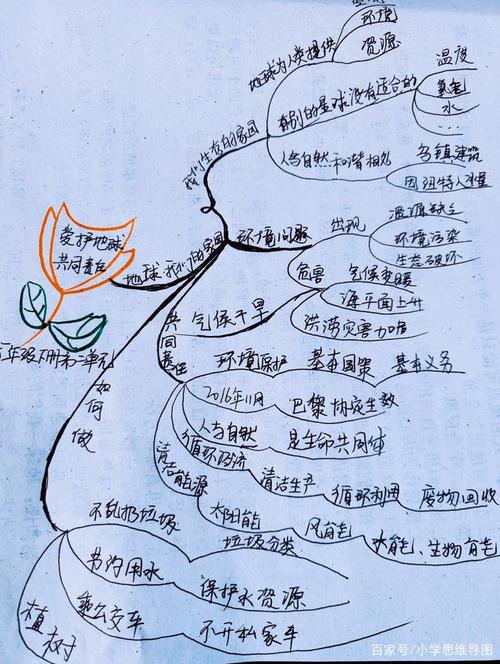 环境
地球为人类提供
资源
温度
有别的星球没有适合的
氧气
水
...
我们生存的家园
人与自然和谐相处
乌镇建筑
因纽特人冰屋
爱护地球
共同责任
地球 我们的家园
环境问题
出现
资源缺乏
环境污染
生态破坏
危害
气候变暖
海平面上升
洪涝灾害加启
气候干旱
共同责任
环境保护
基本国策
基本义务
2016年11月
巴黎协定生效
人与自然
是生命共同体
循环经济
清洁生产
循环利用
废物回收
清洁能源
太阳能
风能
水能、生物能
六年级下册第二单元
如何做
不乱扔垃圾
垃圾分类
节约用水
保护水资源
乘公交车
不开私家车
植树
百家号/小学思维导图